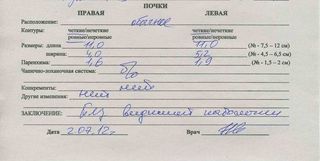 ПОЧКИ
ПРАВАЯ ЛЕВАЯ
Расположение: обычное
Контуры: четкие/нечеткие четкие/нечеткие
ровные/неровные ровные/неровные
Размеры: длина 11,0 11,0 (№ - 7,5 – 12 см)
ширина 4,0 5,2 (№ - 4,5 – 6,5 см)
Паренхима: 1,6 1,9 (№ - 1,5 – 2 см)
Чашечно-лоханочная система: б/о
Конкременты: нет
Другие изменения: нет нет
ЗАКЛЮЧЕНИЕ: без видимой патологии
Дата 2.07.12г. Врач